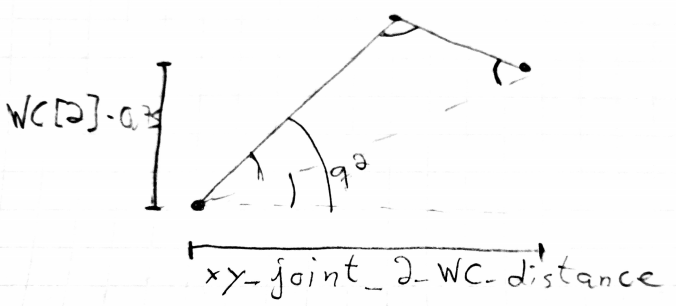 WC[2]-a3
q2
xy_joint_2_WC_distance